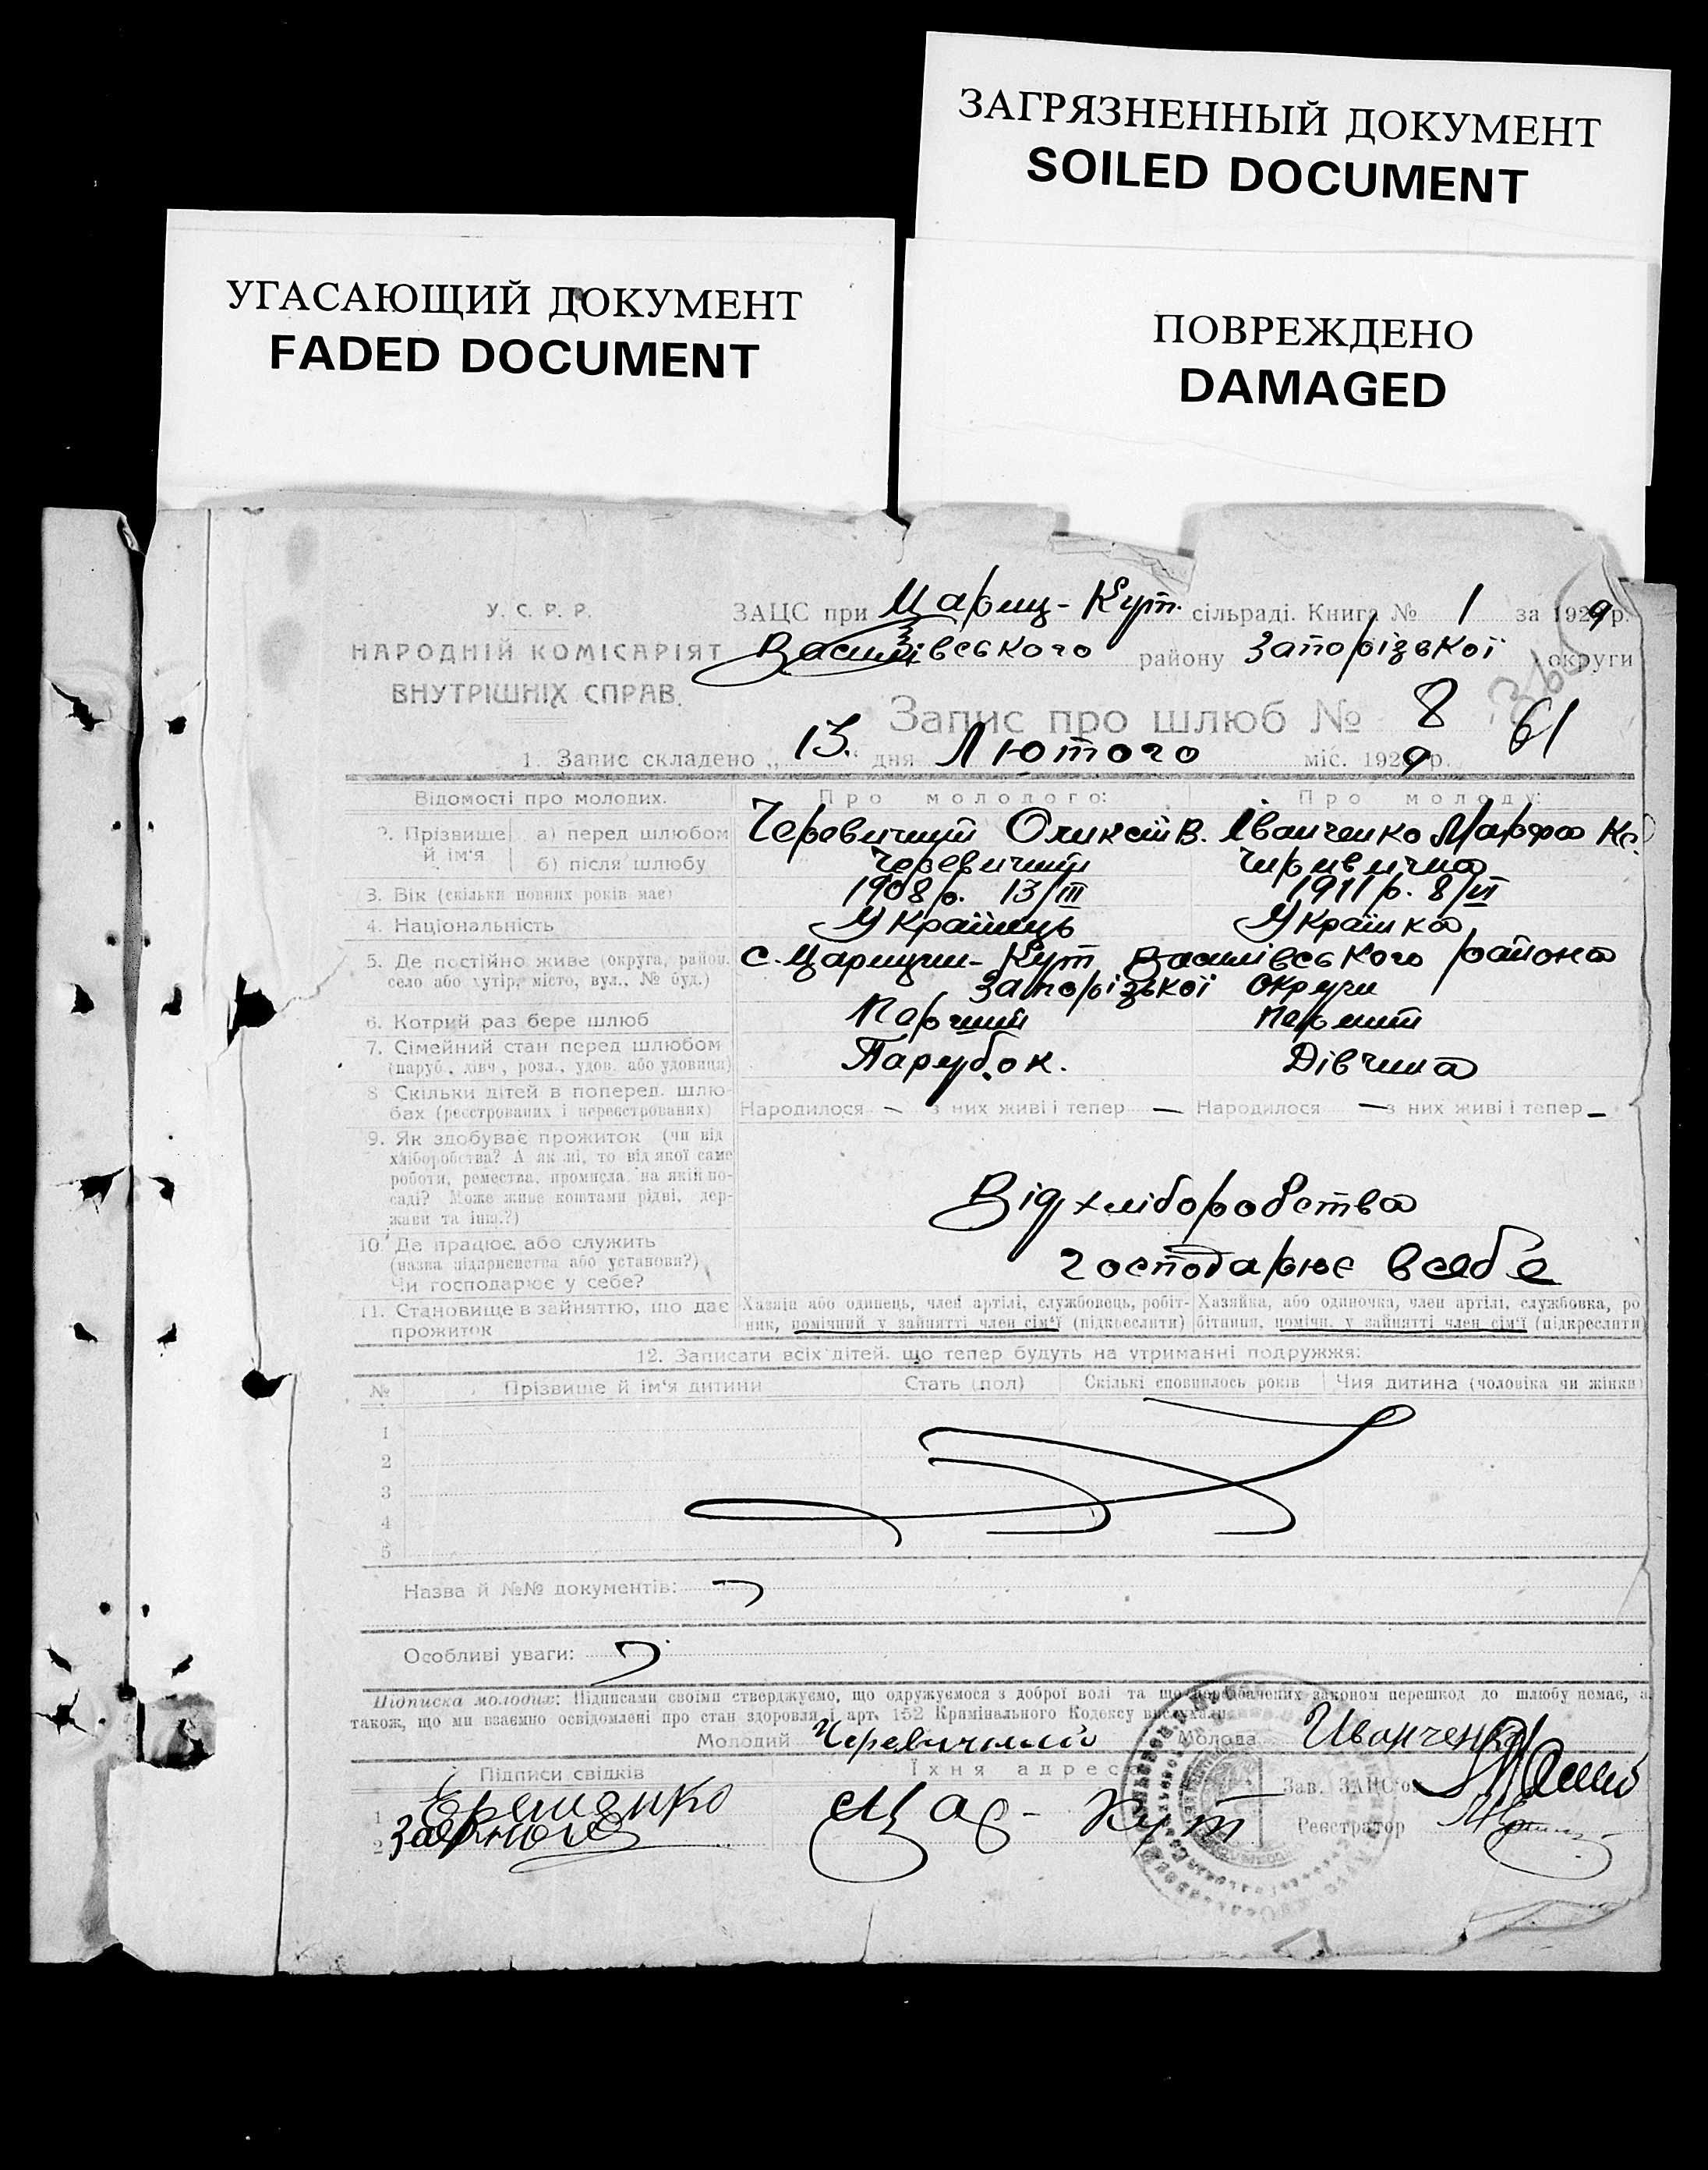 ЗАГРЯЗНЕННЫЙ ДОКУМЕНТ
SOILED DOCUMENT
УГАСАЮЩИЙ ДОКУМЕНТ
FADED DOCUMENT
ПОВРЕЖДЕНО
DAMAGED
У. С. Р. Р.
НАРОДНІЙ КОМІСАРІЯТ
ВНУТРІШНІХ СПРАВ.
ЗАЦС при Цариц-Кут. сільраді. Книга № 1 за 1929 р.
Василівського району Запорізької округи
Запис про шлюб № 8 61
1. Запис складено „13.“ дня Лютого міс. 1929 р.
Відомості про молодих. Про молодого: Про молоду:
2. Прізвище й ім'я а) перед шлюбом Черевичний Оликсій В. Іванченко Марфа
б) після шлюбу Черевичний
3. Вік (скільки повних років має) 1908 р. 13/III 1911 р. 8/VI
4. Національність Українець Українка
5. Де постійно живе (округа, район, с. Царицин-Кут Василівського района
село або хутір, місто, вул., № буд.) Запорізької Округи
6. Котрий раз бере шлюб Перший Перший
7. Сімейний стан перед шлюбом Парубок. Дівчина
(паруб., дівч., розл., удов. або удовиця)
8 Скільки дітей в поперед. шлю-
бах (реєстрованих і нереєстрованих) Народилося — з них живі і тепер — Народилося — з них живі і тепер —
9. Як здобуває прожиток (чи від
хліборобства? А як ні, то від якої саме
роботи, ремества, промисла, на якій по-
саді? Може живе коштами рідні, дер-
жави та інш.?) Від хліборобства
10 Де працює або служить
(назва підприємства або установи?) господарює в себе
Чи господарює у себе?
11. Становище в зайняттю, що дає прожиток
Хазяїн або одинець, член артілі, службовець, робіт-
ник, помічний у зайнятті член сім'ї (підкреслити)
Хазяйка, або одиночка, член артілі, службовка, ро
бітниця, помічн. у зайнятті член сім'ї (підкреслити)
12. Записати всіх дітей, що тепер будуть на утриманні подружжя:
№ Прізвище й ім'я дитини Стать (пол) Скількі сповнилось років Чия дитина (чоловіка чи жінки)
1
2
3
4
5
Назва й №№ документів:
Особливі уваги:
Підписка молодих: Підписами своїми стверджуємо, що одружуємося з доброї волі та що передбачених законом перешкод до шлюбу немає, а
також, що ми взаємно освідомлені про стан здоровля і арт. 152 Крамінального Кодексу вислухали.
Молодий Черевичный Молода Иванченко
Підписи свідків Їхня адреса Зав. ЗАЦС'ом
1 Еременко Цар-Кут Реєстратор
2